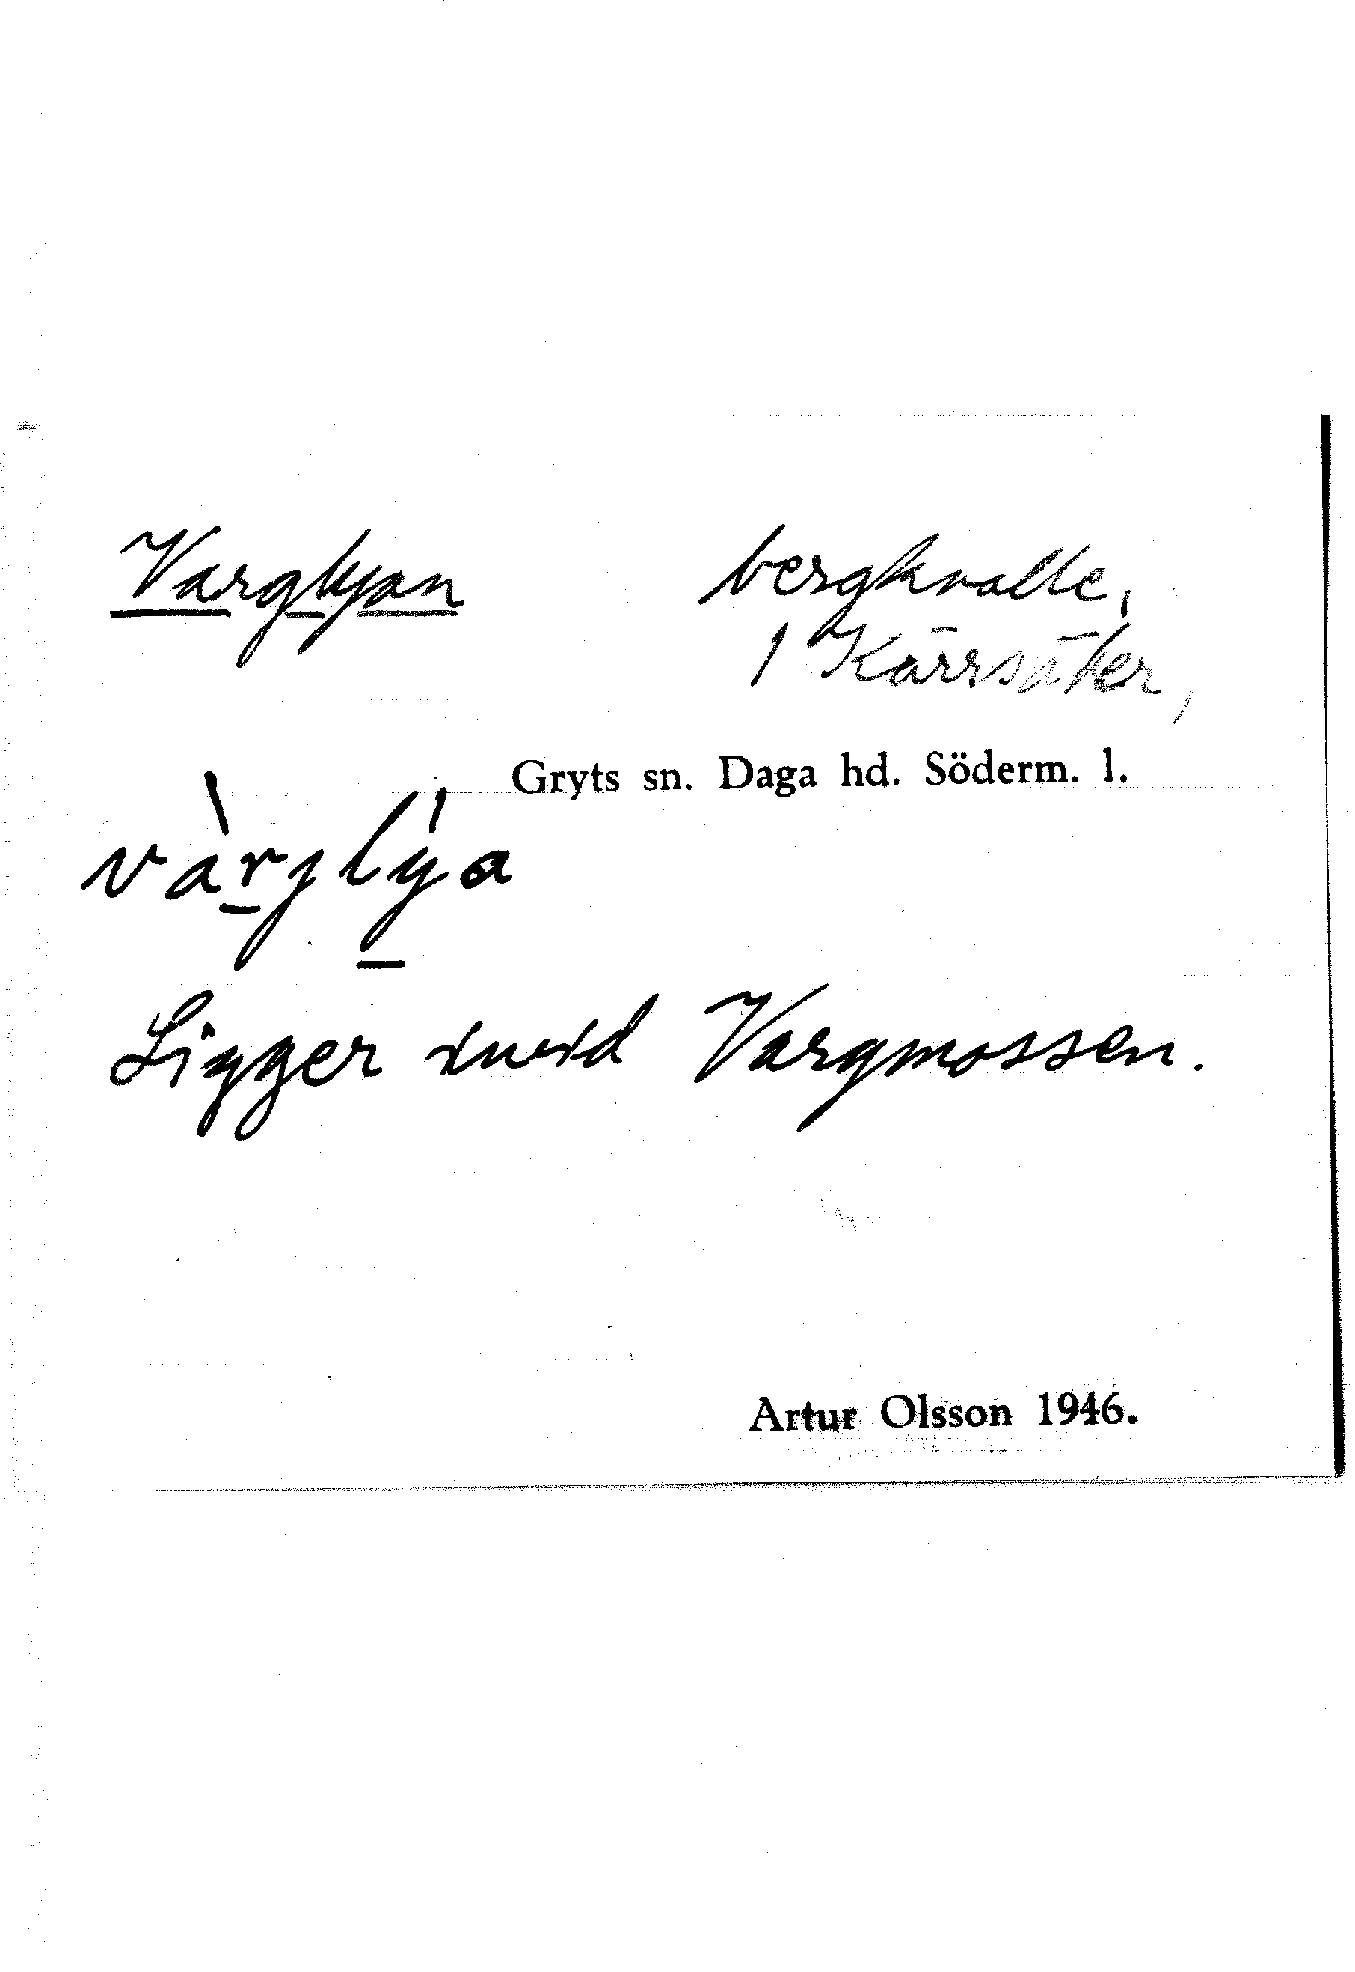 Varglyan bergknalle,
1 Kärrsäter,
Gryts sn. Daga hd. Söderm. l.
Ligger invid Vargmossen.
Artur Olsson 1946.